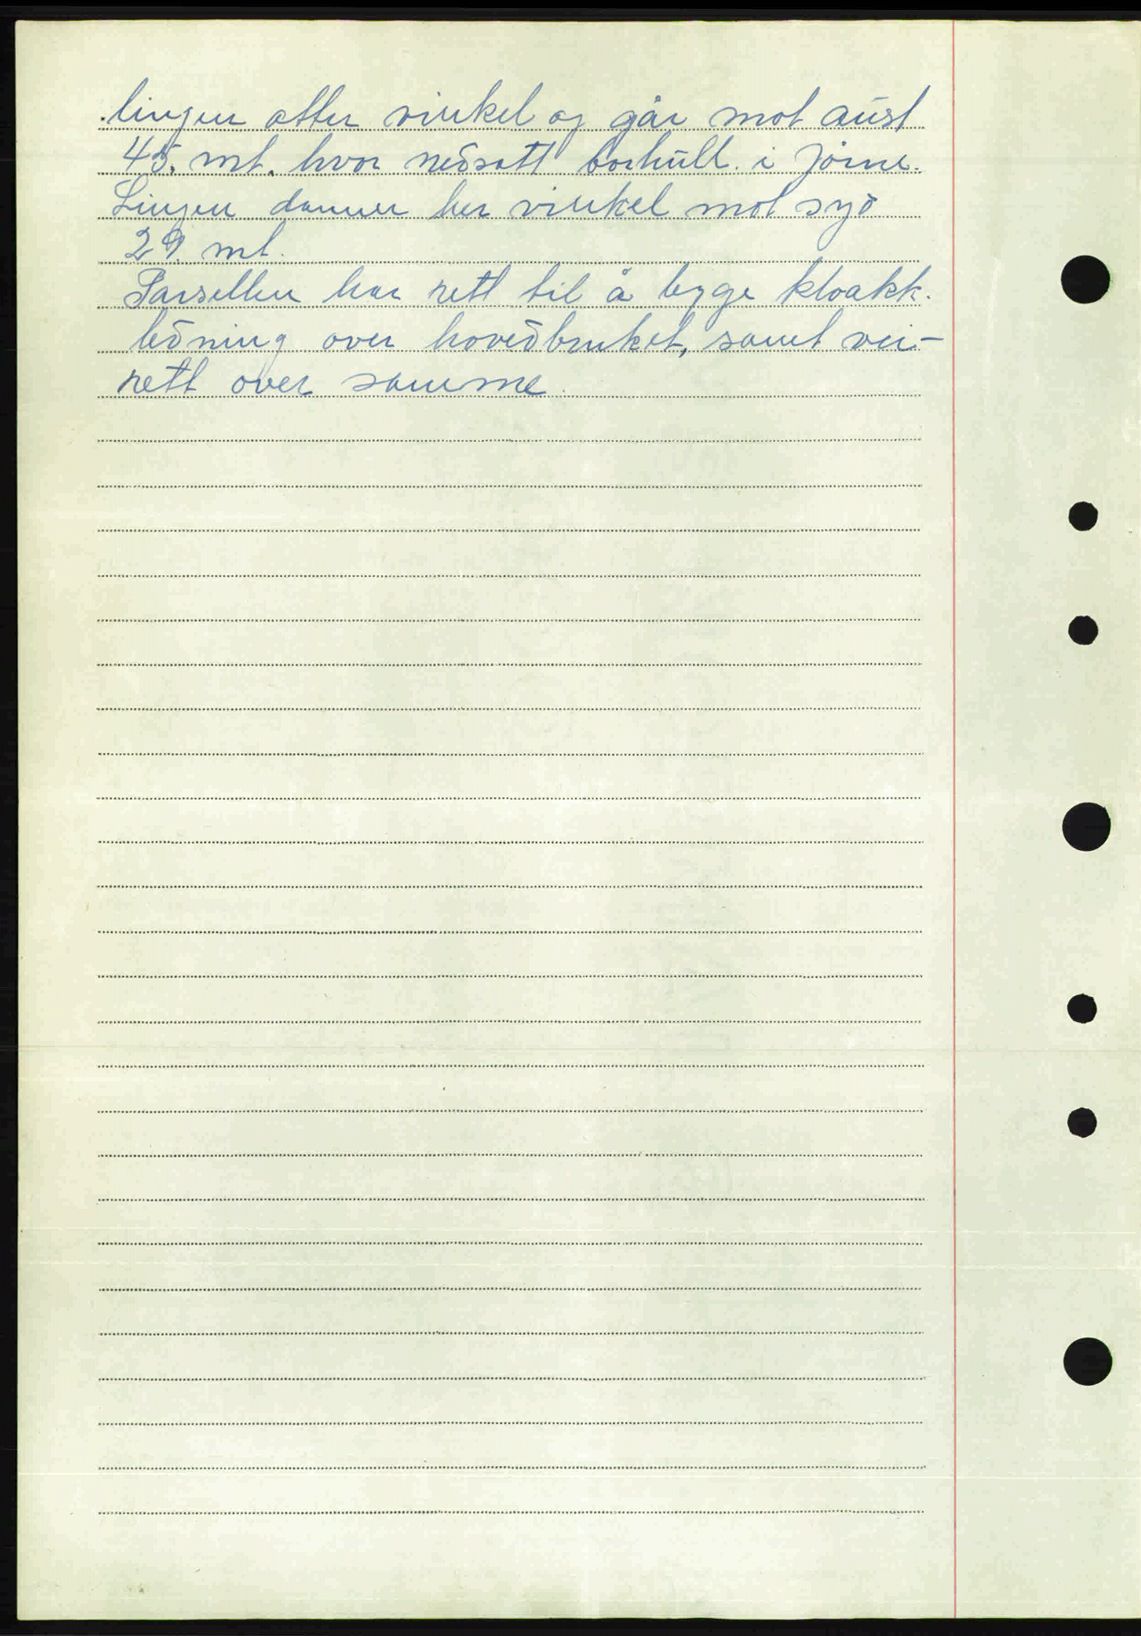 linjen atter vinkel og går mot aust
45. mt. hvor nedsatt borhull i jorne.
Linjen danner her vinkel mot syd
29 mt.
Parsellen har rett til å legge kloakk.
ledning over hovedbruket, samt vei-
rett over samme.